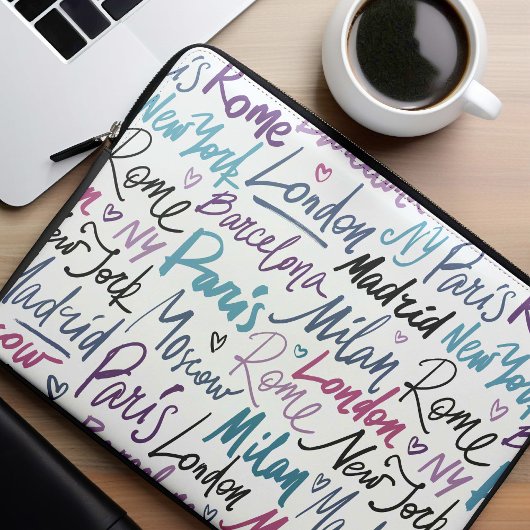 is Rome
New York
Barcelona
London
NY
Paris
Rome
Barcelona
Madrid
New York
NY
Paris
Milan
Rome
New York
Moscow
Rome
London
NY
Madrid
Paris
Milan
New York
London